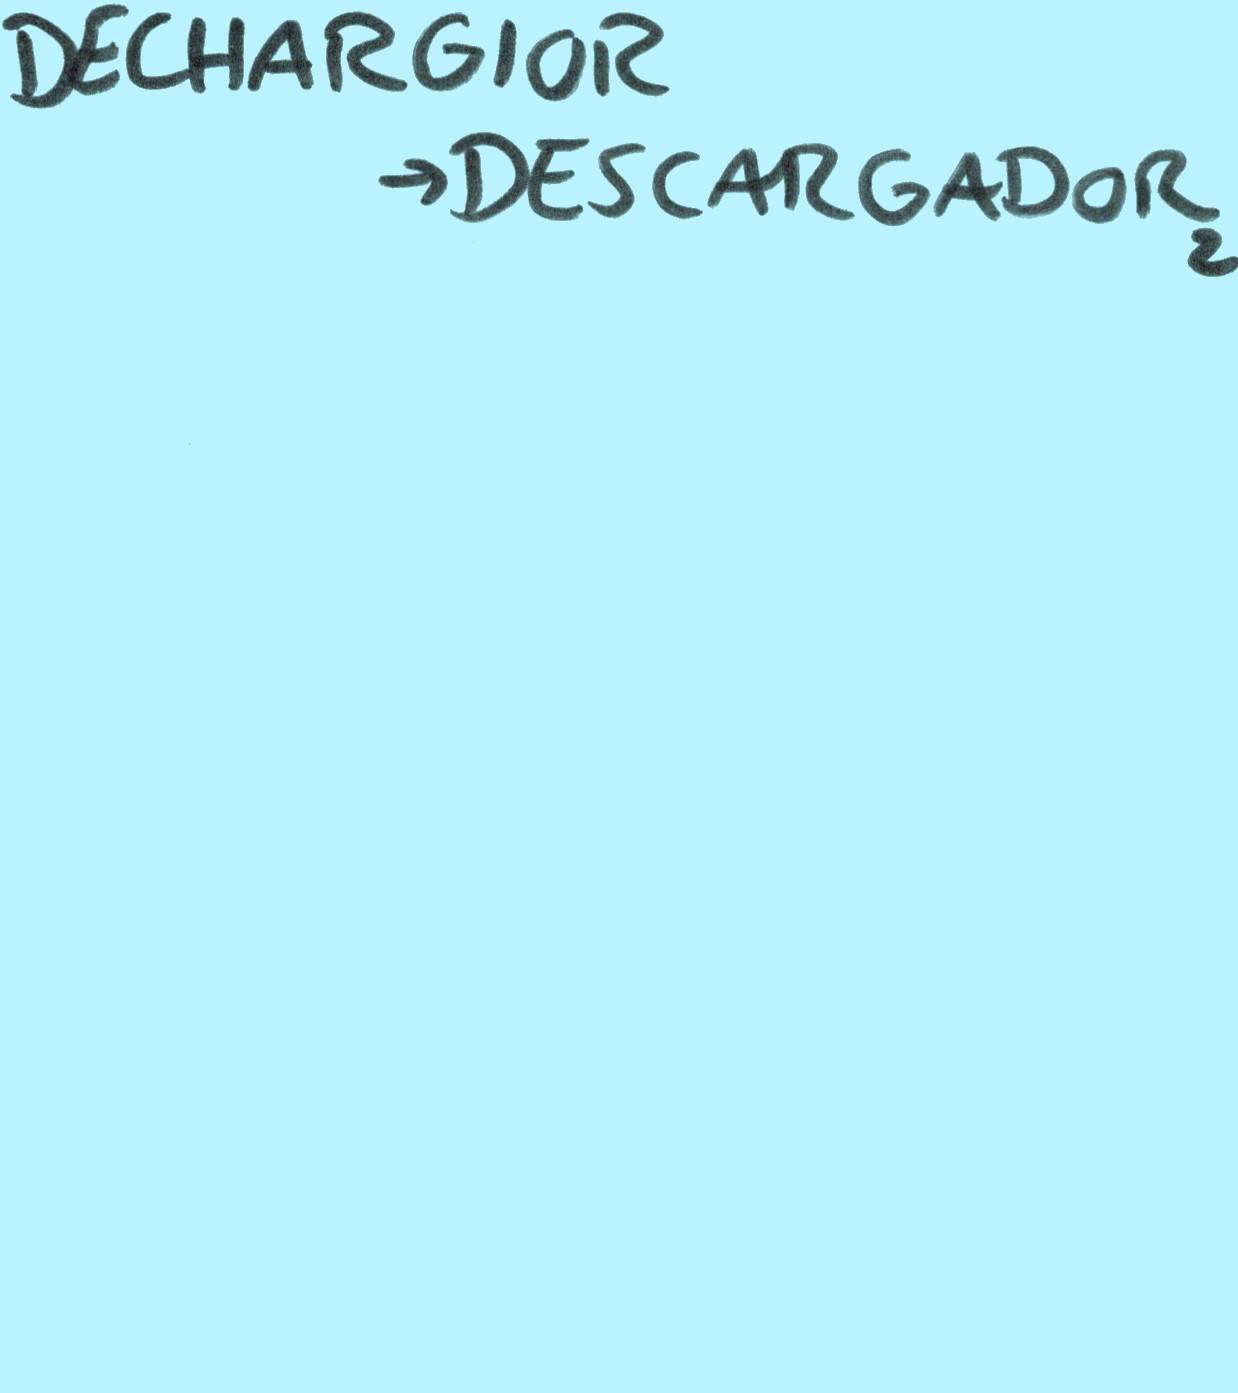 DECHARGIOR
→DESCARGADOR
2